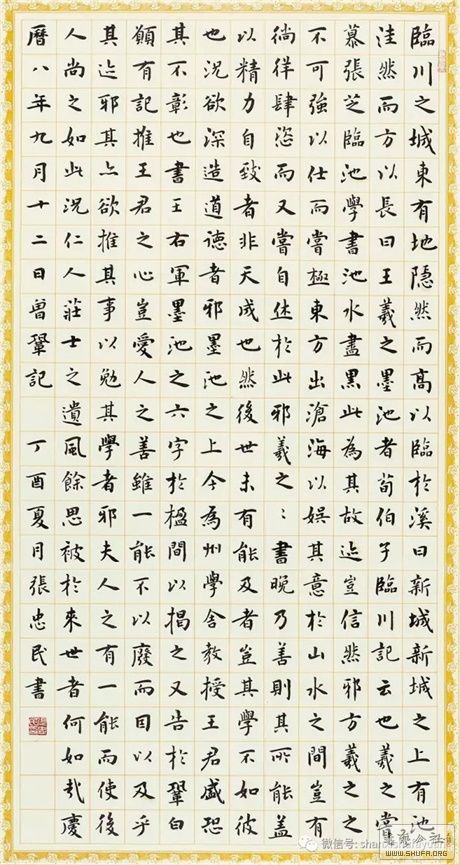 臨川之城東有地隱然而高以臨於溪曰新城新城之上有池
洼然而方以長曰王羲之墨池者荀伯子臨川記云也羲之嘗
慕張芝臨池學書池水盡黑此為其故迹豈信然邪方羲之之
不可強以仕而嘗極東方出滄海以娛其意於山水之間豈有
徜徉肆恣而又嘗自休於此邪羲之〻書晚乃善則其所能蓋
以精力自致者非天成也然後世未有能及者豈其學不如彼
也況欲深造道德者邪墨池之上今為州學舍教授王君盛恐
其不彰也書王右軍墨池之六字於楹間以揭之又告於鞏曰
願有記推王君之心豈愛人之善雖一能不以廢而因以及乎
其迹邪其亦欲推其事以勉其學者邪夫人之有一能而使後
人尚之如此況仁人莊士之遺風餘思被於來世者何如哉慶
曆八年九月十二日曾鞏記 丁酉夏月張忠民書
微信号:
WWW.SHUFA.ORG